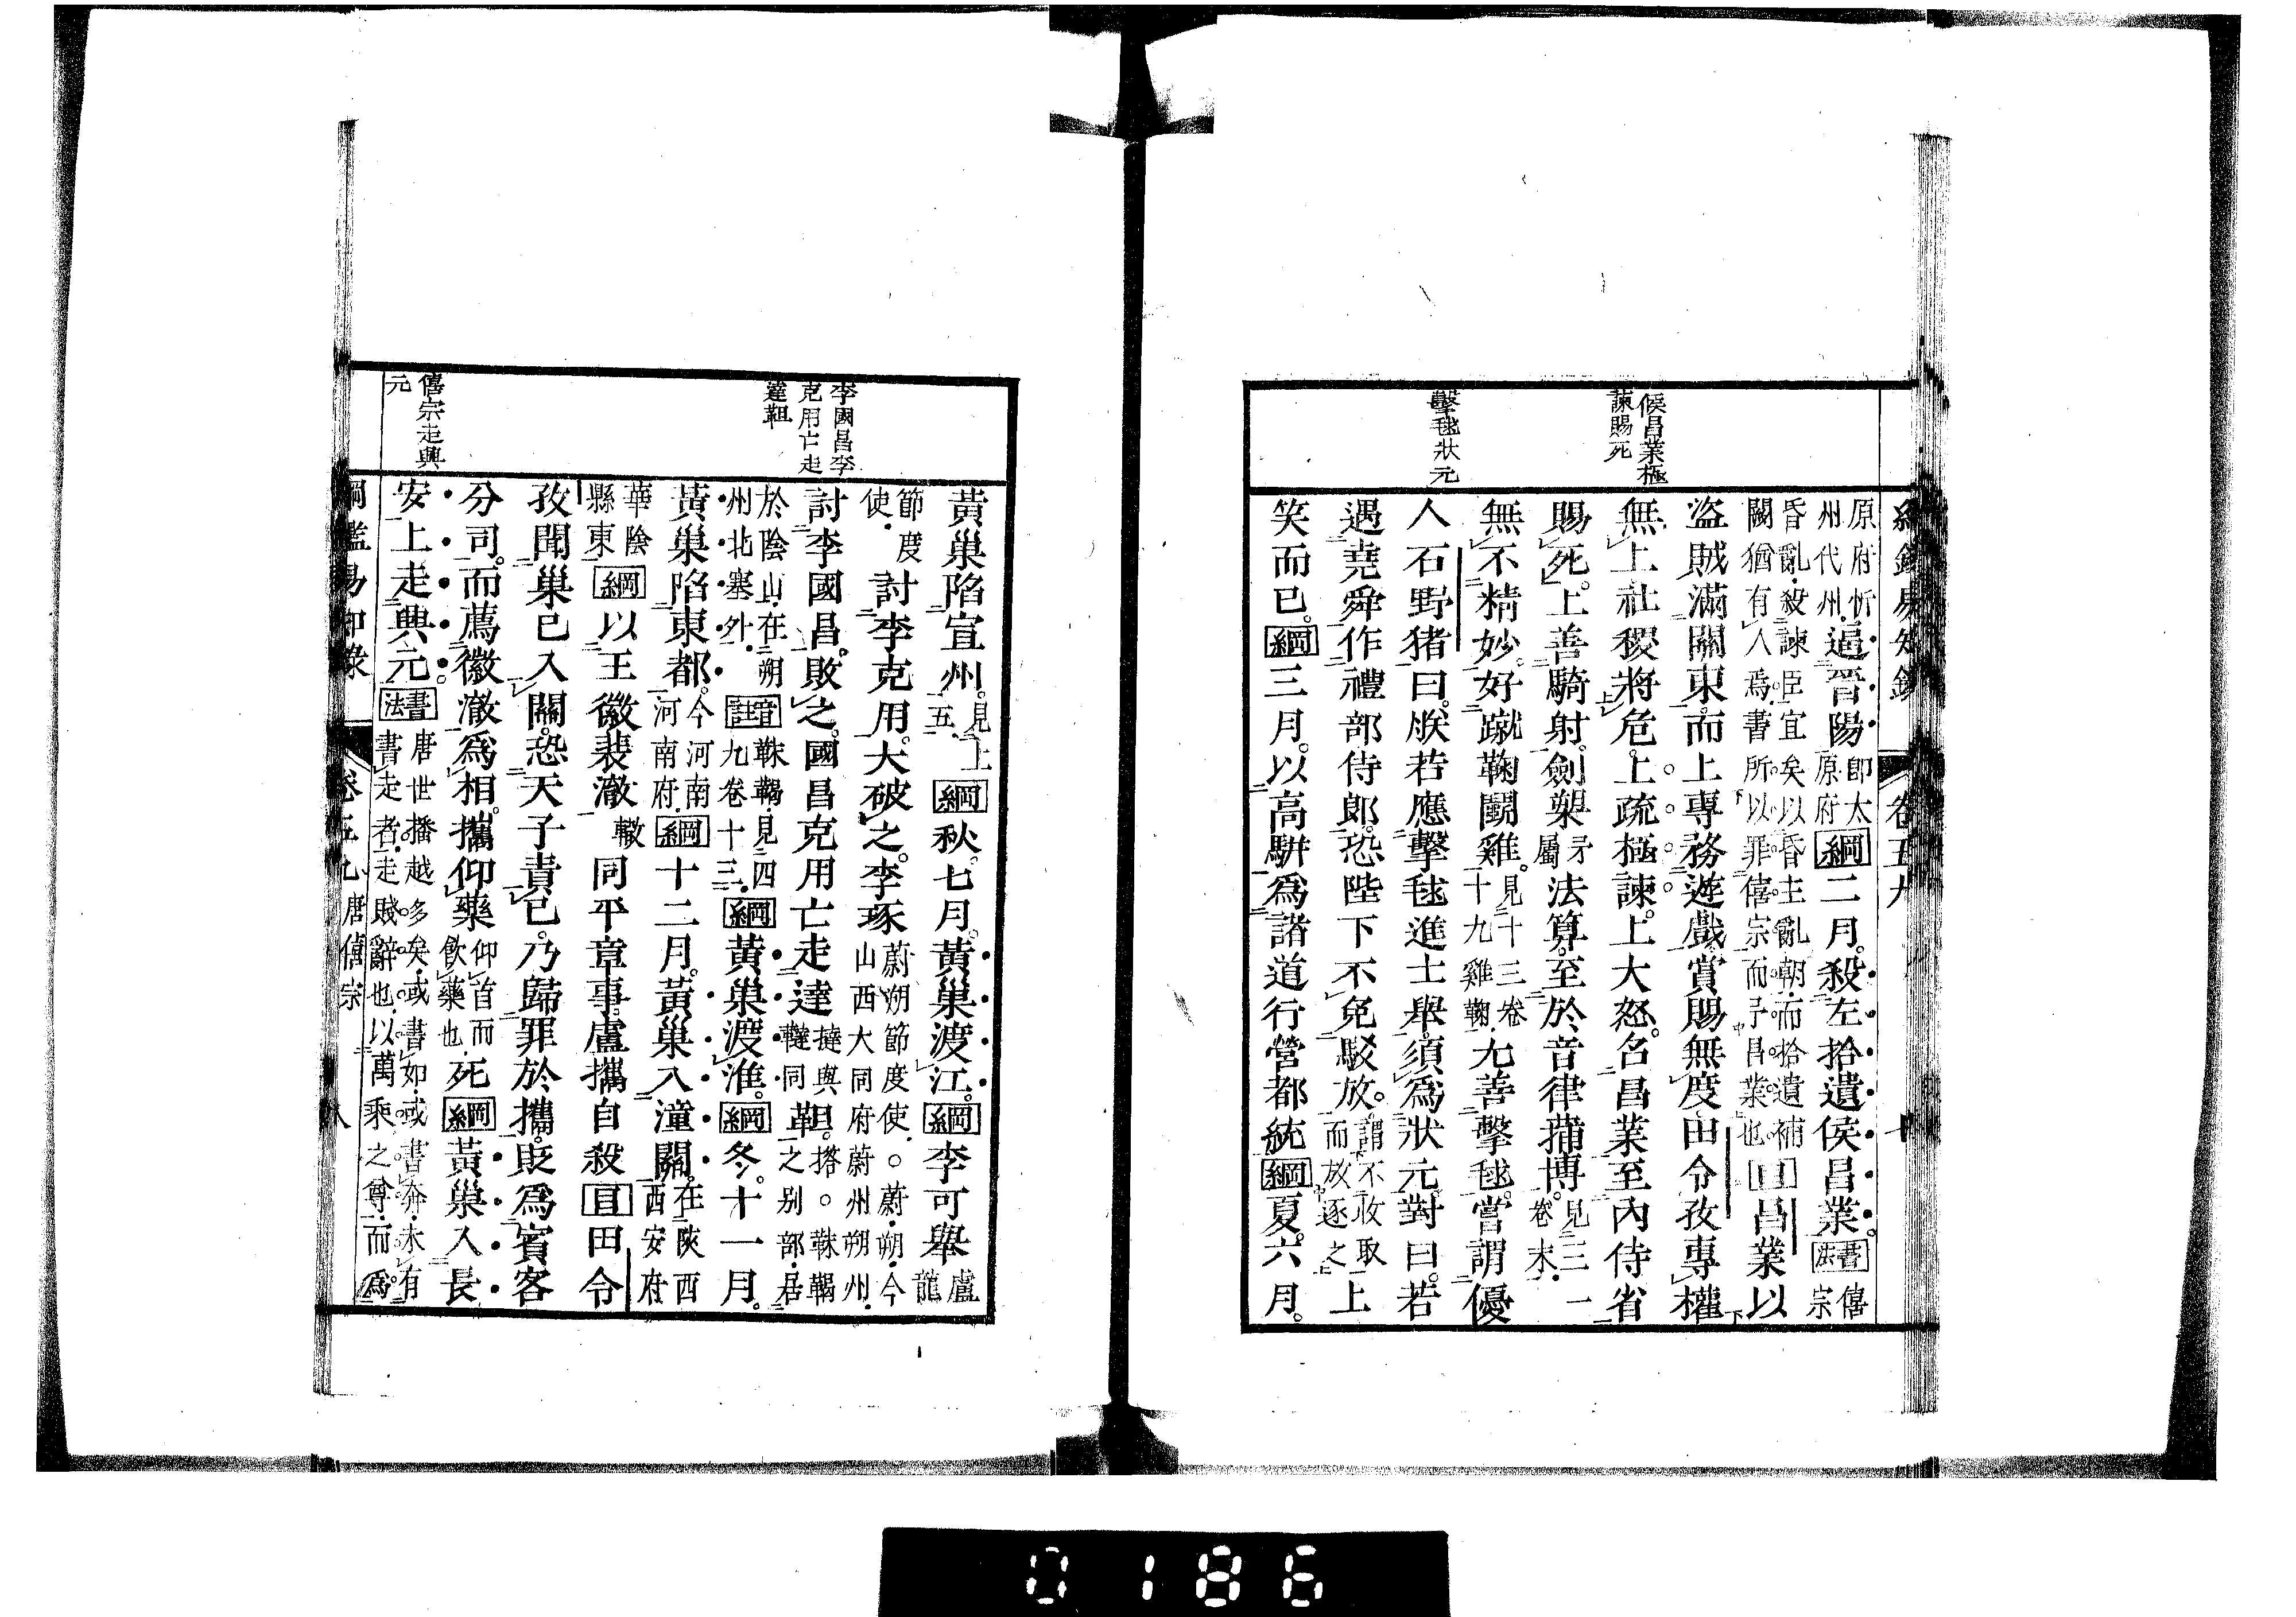 侯昌業極
諫賜死
擊毬狀元
卷五九
十
原府忻
州代州逼晉陽即太
原府綱二月殺左拾遺侯昌業書法僖
宗
昏亂殺諫臣宜矣以昏主亂朝而拾遺補
闕猶有人焉書所以罪僖宗而予昌業也目昌業以
盜賊滿關東而上專務遊戲賞賜無度田令孜專權
無上社稷將危上疏極諫上大怒召昌業至內侍省
賜死上善騎射劍槊矛
屬法算至於音律蒲博見三一
卷末
無不精妙好蹴鞠鬬雞見十三卷
十九雞鞠尤善擊毬嘗謂優
人石野猪曰朕若應擊毬進士舉須爲狀元對曰若
遇堯舜作禮部侍郎恐陛下不免駁放謂不收取
而放逐之上
笑而已綱三月以高駢爲諸道行營都統綱夏六月
李國昌李
克用亡走
達靼
僖宗走興
元
黃巢陷宣州見上
五綱秋七月黃巢渡江綱李可舉盧
龍
節度
使討李克用大破之李琢蔚朔節度使○蔚朔今
山西大同府蔚州朔州
討李國昌敗之國昌克用亡走達撻與
韃同靼搭○靺鞨
之别部居
於陰山在朔
州北塞外音註靺鞨見四
九卷十三綱黃巢渡淮綱冬十一月
黃巢陷東都今河南
河南府綱十二月黃巢入潼關在陝西
西安府
華陰
縣東綱以王徽裴澈轍同平章事盧攜自殺目田令
孜聞巢已入關恐天子責己乃歸罪於攜貶爲賓客
分司而薦徽澈爲相攜仰藥仰首而
飲藥也死綱黃巢入長
安上走興元書法唐世播越多矣或書如或書奔未有
書走者走賤辭也以萬乘之尊而爲
綱鑑易知錄
卷五九唐僖宗
八
0186